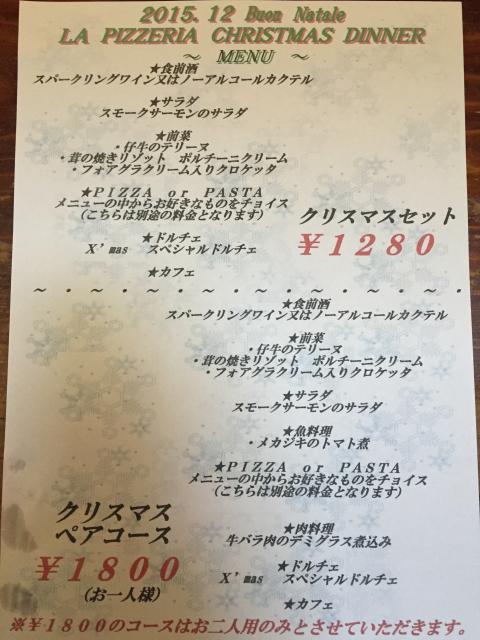 2015.12 Buon Natale
LA PIZZERIA CHRISTMAS DINNER
～ MENU ～
★食前酒
スパークリングワイン又はノーアルコールカクテル
★サラダ
スモークサーモンのサラダ
★前菜
・仔牛のテリーヌ
・茸の焼きリゾット ポルチーニクリーム
・フォアグラクリーム入りクロケッタ
★PIZZA or PASTA
メニューの中からお好きなものをチョイス
(こちらは別途の料金となります)
★ドルチェ
X'mas スペシャルドルチェ
★カフェ
クリスマスセット
￥1280
～・～・～・～・～・～・～・～・
★食前酒
スパークリングワイン又はノーアルコールカクテル
★前菜
・仔牛のテリーヌ
・茸の焼きリゾット ポルチーニクリーム
・フォアグラクリーム入りクロケッタ
★サラダ
スモークサーモンのサラダ
★魚料理
・メカジキのトマト煮
★PIZZA or PASTA
メニューの中からお好きなものをチョイス
(こちらは別途の料金となります)
★肉料理
牛バラ肉のデミグラス煮込み
★ドルチェ
X'mas スペシャルドルチェ
★カフェ
クリスマス
ペアコース
￥1800
(お一人様)
※￥1800のコースはお二人用のみとさせていただきます。